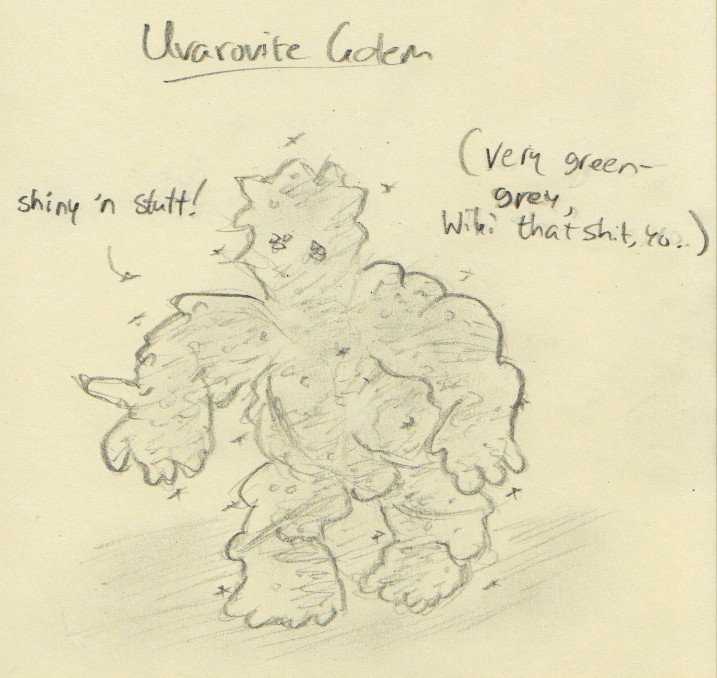 Uvarovite Golem
(very green-
grey,
Wiki that shit, yo..)
shiny 'n stuff!